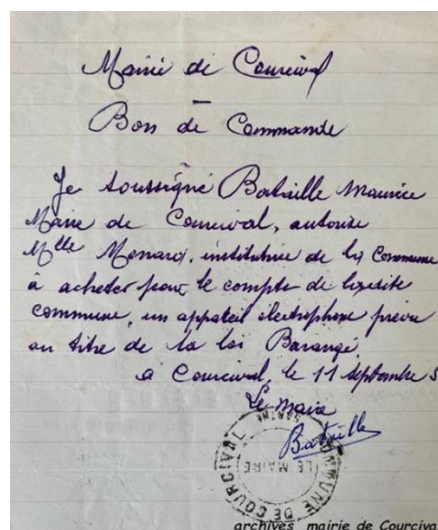 Mairie de Courcival
Bon de Commande
Je soussigné Bataille Maurice
Maire de Courcival, autorise
Mlle Menard, institutrice de la Commune
à acheter pour le compte de ladite
commune, un appareil électrophone prévu
au titre de la loi Barangé.
à Courcival, le 11 Septembre 5
Le maire
Bataille
COMMUNE DE COURCIVAL
LE MAIRE
SARTHE
archives mairie de Courciva